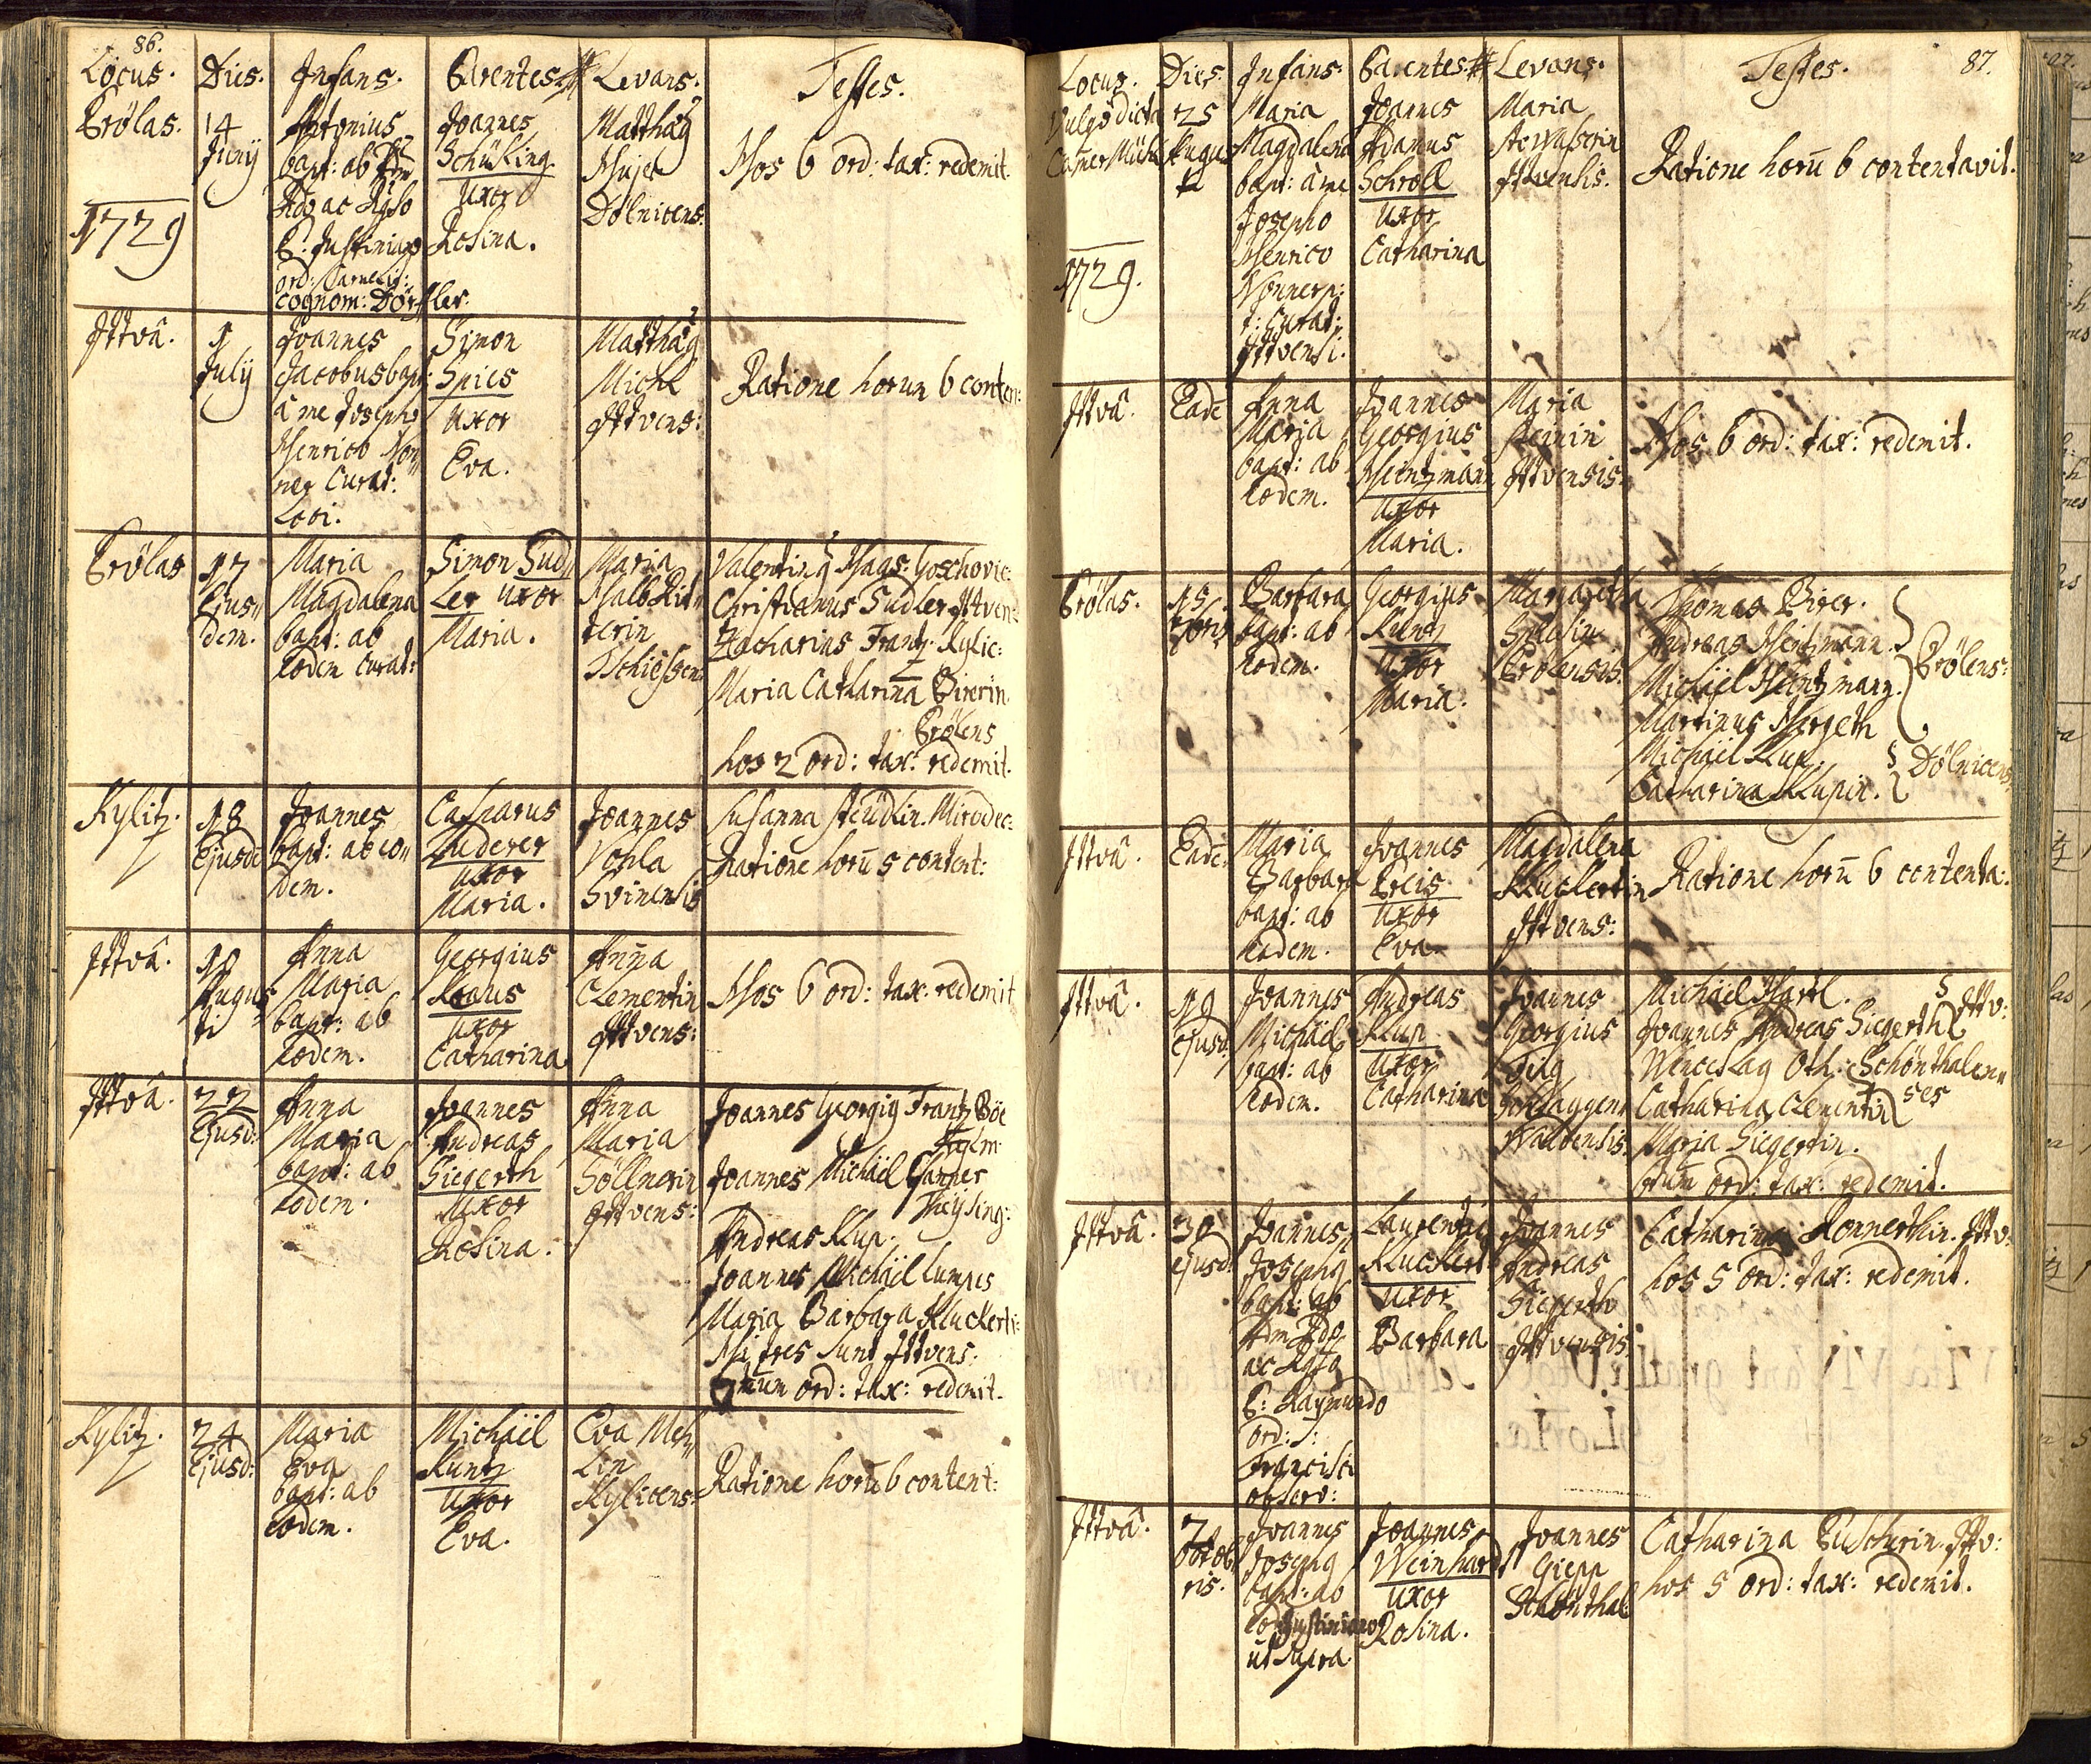 86.
Locus. Dies. Infans. Parentes. Levans. Testes.
Prölas.
1729
14
Junÿ
Antonius
bapt: ab
Rdo ac Rgso
P. Justiniano
ord: Carmelit:
cognom: Dörfler.
Joannes
Schüking.
Uxor
Rosina.
Matthaeg
Dölnicens:
Hos 6 ord: tax: redemit.
Ittvâ.
1
July
Joannes
Jacobus bapt:
â me Josepho
Henrico Non
ner Curat:
Loci.
Simon
Spies
Uxor
Eva.
Matthaeg
Michl
Ittvens:
Ratione horum 6 conten:
Prölas
17
Ejus
dem.
Maria
Magdalena
bapt: ab
eodem curat:
Simon Sud
Ler uxor
Maria.
Maria
Halb Rit
terin
Tschiessen:
Valenting Hags. Goschovic:
Christianus Sudler Ittven:
Zacharias Frantz. Kylic:
Maria Catharina Birerin.
Prölens
hos 2 ord: tax: redemit.
Kylitz.
18
Ejusdē
Joannes
bapt: ab eo
dem.
Casparus
Luderer
Uxor
Maria.
Joannes
Vohla
Svinensis
Susanna Steüdlin. Mirodec:
Ratione horū 5 content:
Ittvâ.
10
Augus
ti
Anna
Maria
bapt: ab
eodem.
Georgius
Kraus
Uxor
Catharina
Anna
Clementin
Ittvens:
Hos 6 ord: tax: redemit
Ittvâ.
22
Ejusd:
Anna
Maria
bapt: ab
eodem.
Joannes
Andreas
Siegerth
Uxor
Rosina.
Anna
Maria
Söllnerin
Ittvens:
Joannes Georgig Frantz Böe
Joannes Michäel Ganser
Theÿsing:
Andreas Klup.
Joannes Michäel Lumpes
Maria Barbara Kluckerti:
Hi tres sunt Ittvens:
7mum ord: tax: redemit.
Kylitz.
24
Ejusd:
Maria
Eva
bapt: ab
eodem.
Michäel
Kuntz
Uxor
Eva.
Eva Meh
Lin
Kylicens:
Ratione horū 6 content:
87.
Locus. Dies. Infans. Parentes. Levans. Testes.
Vulgo dicta
Camer Mühl
1729.
25
Augus
ti
Maria
Magdalena
bapt: â me
Josepho
Henrico
Nonner p:
t: Curat:
Ittvensi.
Joannes
Adamus
Schroll
Uxor
Catharina
Maria
Ittvensis.
Ratione horū 6 contentavit.
Ittvâ.
Eadē
Anna
Maria
bapt: ab
eodem.
Joannes
Georgius
Heintzmann
Uxor
Maria.
Maria
Steinin
Ittvensis.
Hos 6 ord: tax: redemit.
Prölas.
15
7bris
Barbara
bapt: ab
eodem.
Georgius
Kuntz
Uxor
Maria.
Margaretha
Prölensis.
Thomas Birer.
Andreas Heintzmann.
Michäel Heintzmann.
Prölens:
Martinus Hergeth
Michäel Klup.
Catharina Klupin.
Dölnicens:
Ittvâ.
Eadē.
Maria
Barbara
bapt: ab
eodem.
Joannes
Preis
Uxor
Eva
Magdalena
Kluckertin
Ittvens:
Ratione horū 6 contenta:
Ittvâ.
19
Ejusd:
Joannes
Michäel
bapt: ab
eodem.
Andreas
Klup
Uxor
Catharina
Joannes
Georgius
Waldensis.
Michäel Hartl.
Joannes Andreas Siegerth
Ittv:
Wenceslag Oth. Schönthalen
ses
Catharina Clementin
Maria Siegertin.
7mum ord: tax: redemit.
Ittvâ.
30
ejusd:
Joannes
Josephg
bapt: ab
Adm Rdo
ac Rgso
P: Raymundo
ord: S:
Francisci
observ:
Laurentig
Kluckert
Uxor
Barbara
Joannes
Andreas
Siegerth
Ittvensis.
Catharina Konnerthin. Ittv:
hos 5 ord: tax: redemit.
Ittvâ.
2
Octob
ris.
Joannes
Josephg
bapt: ab
eo Justiniano
ut supra
Joannes
Weinhard
Uxor
Rosina.
Joannes
Giepp
Schönthal:
Catharina Puscherin. Ittv:
hos 5 ord: tax: redemit.